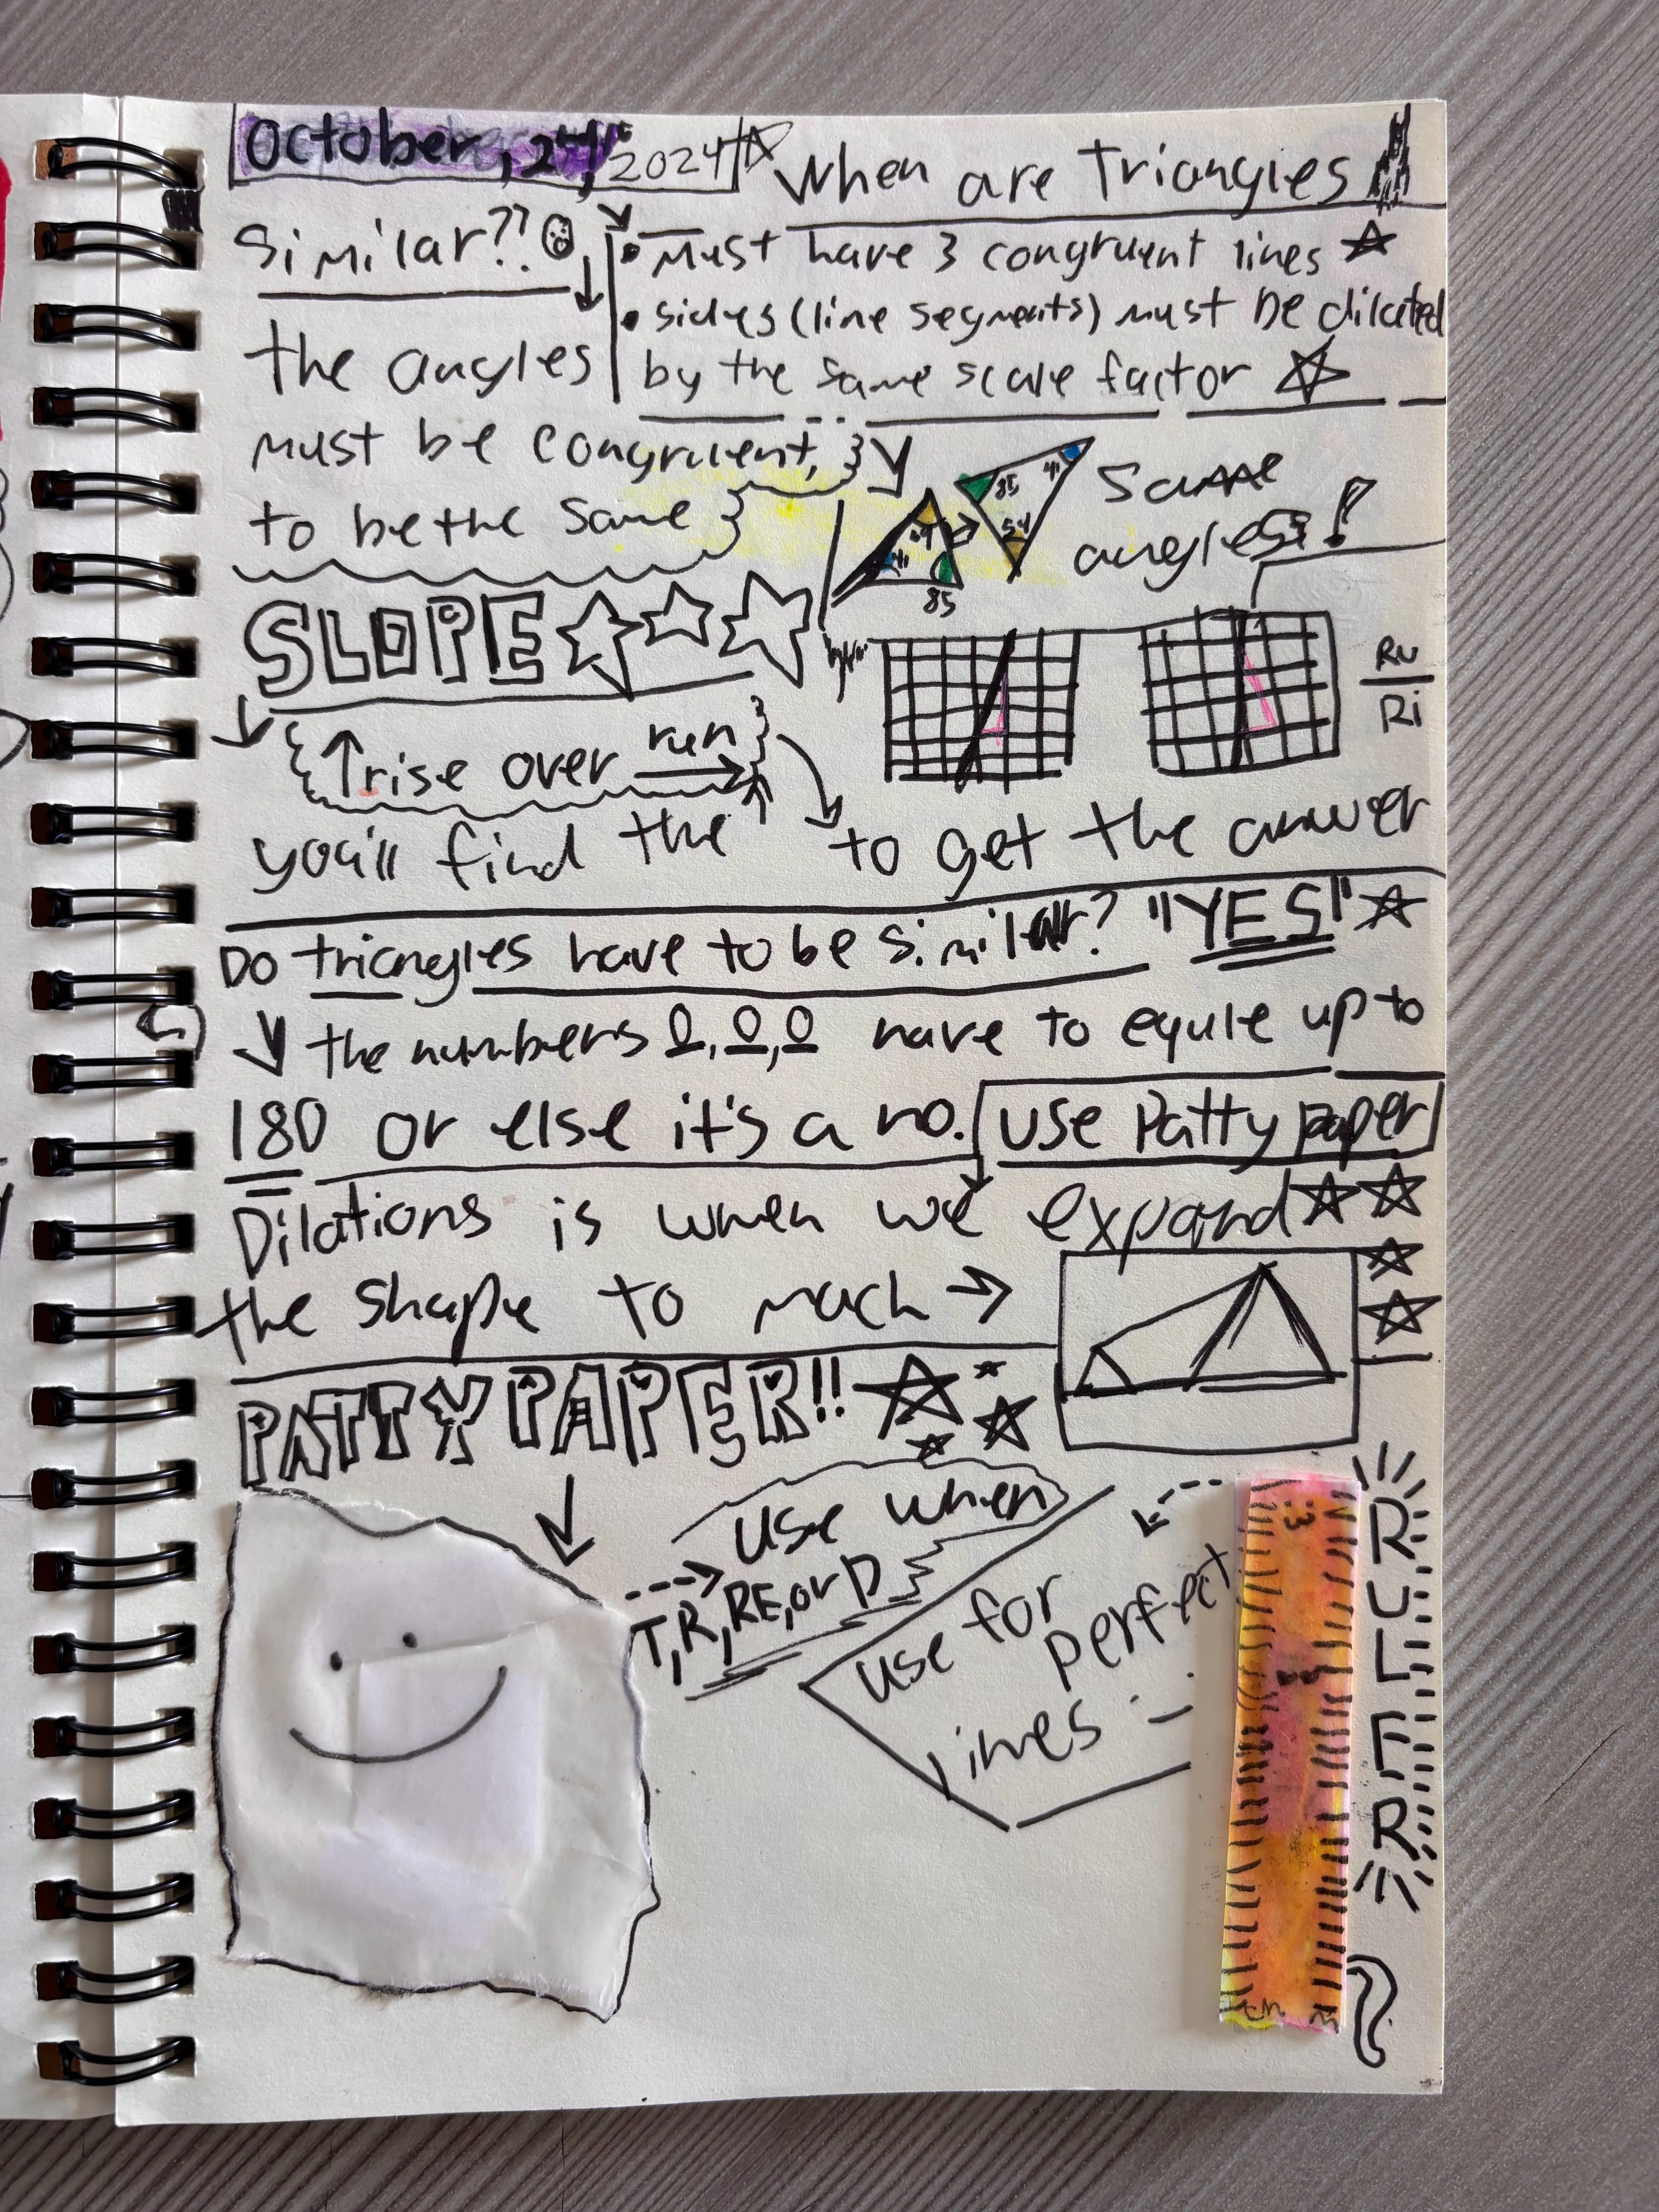 October, 24, 2024
When are Triangles
Similar??
the angles
must be congruent,
to be the same
• Must have 3 congruent lines
• sides (line segments) must be dilated
by the same scale factor
85 41 54
41 85
Same
angles!
SLOPE
Ru
Ri
↑rise over run
you'll find the
to get the answer
Do triangles have to be similar? "YES"
the numbers 0, 0, 0 have to equle up to
180 or else it's a no.
use Patty paper
Dilations is when we expand
the shape to mach →
PATTY PAPER!!
use when
T, R, RE, or D
use for
perfect
lines
RULER